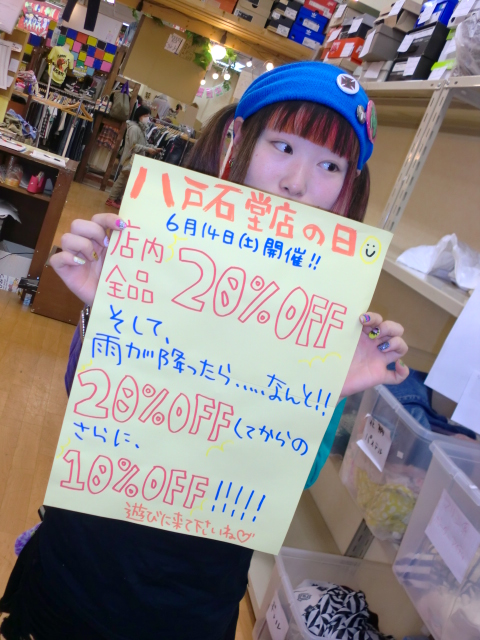 八戸石堂店の日
6月14日(土)開催!!
店内
全品 20%OFF
そして、
雨が降ったら.....なんと!!
20%OFFしてからの
さらに、
10%OFF!!!!!
遊びに来て下さいね♡